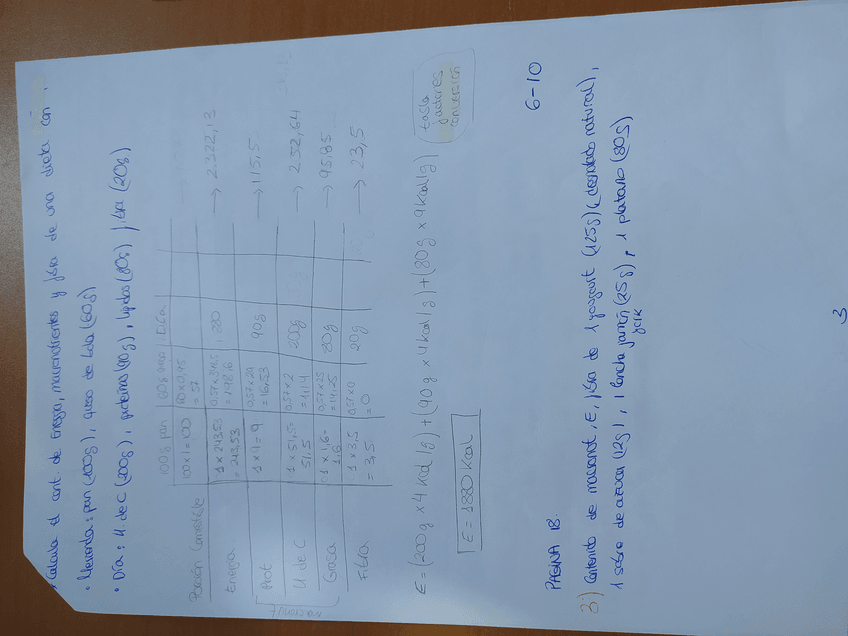 • Calcula el cont. de Energía, macronutrientes y fibra de una dieta con:
• Merienda: pan (100g), queso de bola (60g)
• Día: H. de C (200g), proteínas (90g), lípidos (80g), fibra (20g)
100g pan | 60g queso | Día
Porción Comestible | 100 x 1 = 100 | 60 x 0,95 = 57
Energía | 1 x 243,53 = 243,53 | = 198,6 | 1.880 → 2.322,13
Prot | 1 x 9 = 9 | 0,57 x 29 = 16,53 | 90g → 115,5
H de C | 1 x 51,5 = 51,5 | 0,57 x 2 = 1,14 | 200g → 252,64
Grasa | 1 x 1,6 = 1,6 | 0,57 x 25 = 14,25 | 80g → 95,85
Fibra | 1 x 3,5 = 3,5 | 0,57 x 0 = 0 | 20g → 23,5
E = (200g x 4 Kcal/g) + (90g x 4 Kcal/g) + (80g x 9 Kcal/g)
tabla factores conversión
E = 1880 Kcal
6-10
PÁGINA 18.
3) Contenido de macronut, E, fibra de 1 yougourt (125g) (desnatado natural),
1 sobre de azúcar (12g), 1 loncha jamón york (25g), 1 plátano (80g)
3